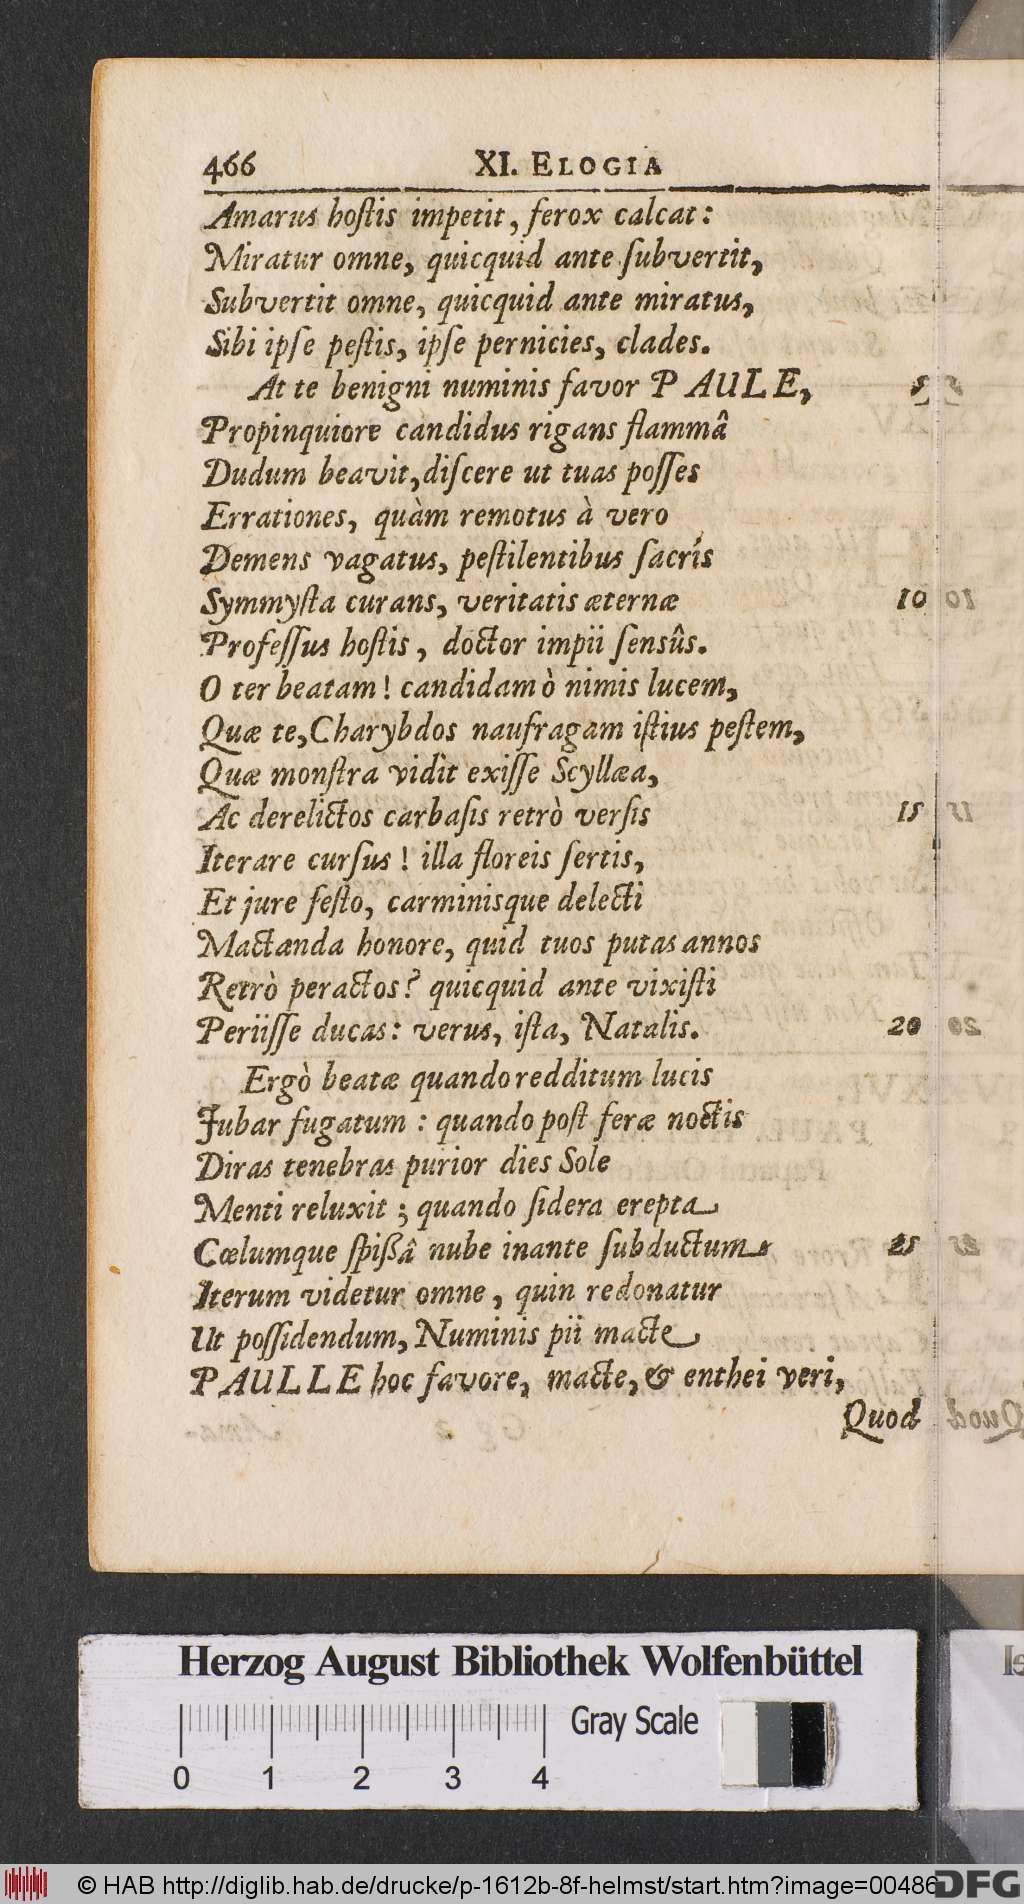 466 XI. ELOGIA
Amarus hoſtis impetit, ferox calcat:
Miratur omne, quicquid ante ſubvertit,
Subvertit omne, quicquid ante miratus,
Sibi ipſe peſtis, ipſe pernicies, clades.
At te benigni numinis favor PAULE, 5
Propinquiore candidus rigans flammâ
Dudum beavit, diſcere ut tuas poſſes
Errationes, quàm remotus à vero
Demens vagatus, peſtilentibus ſacris
Symmyſta curans, veritatis æternæ 10
Profeſſus hoſtis, doctor impii ſensûs.
O ter beatam! candidam ò nimis lucem,
Quæ te, Charybdos naufragam iſtius peſtem,
Quæ monſtra vidìt exiſſe Scyllæa,
Ac derelictos carbaſis retrò verſis 15
Iterare curſus! illa floreis ſertis,
Et jure feſto, carminisque delecti
Mactanda honore, quid tuos putas annos
Retrò peractos? quicquid ante vixiſti
Periiſſe ducas: verus, iſta, Natalis. 20
Ergò beatæ quando redditum lucis
Jubar fugatum: quando poſt feræ noctis
Diras tenebras purior dies Sole
Menti reluxit; quando ſidera erepta
Cœlumque ſpiſsâ nube inante ſubductum 25
Iterum videtur omne, quin redonatur
Ut poſſidendum, Numinis pii macte
PAULLE hoc favore, macte, & enthei veri,
Quod
Herzog August Bibliothek Wolfenbüttel
Gray Scale
0 1 2 3 4
© HAB http://diglib.hab.de/drucke/p-1612b-8f-helmst/start.htm?image=00486
DFG